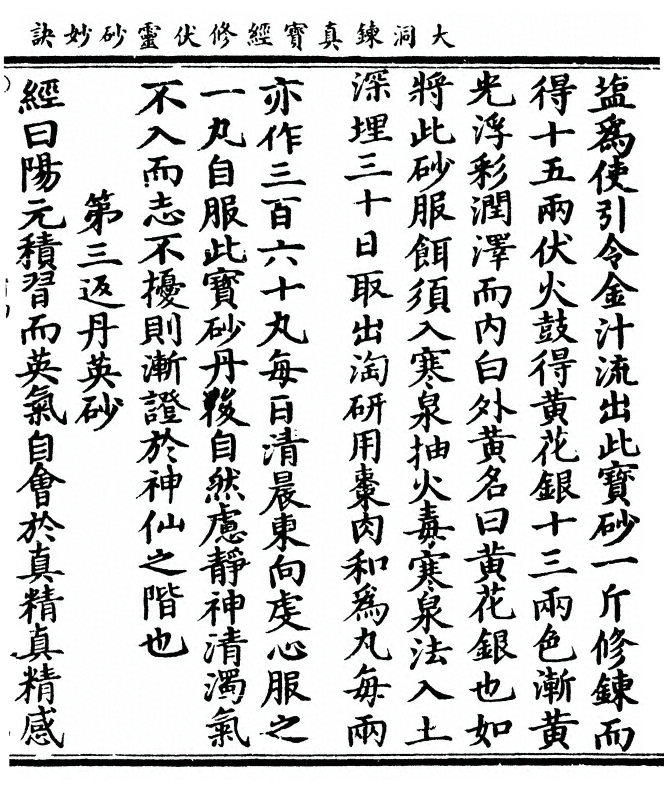 大洞鍊真寶經修伏靈砂妙訣
塩爲使引令金汁流出此寶砂一斤修鍊而
得十五兩伏火鼓得黄花銀十三兩色漸黄
光浮彩潤澤而内白外黄名曰黄花銀也如
將此砂服餌須入寒泉抽火毒寒泉法入土
深埋三十日取出淘研用棗肉和爲丸每兩
亦作三百六十丸每日清晨東向虔心服之
一丸自服此寶砂丹後自然慮靜神清濁氣
不入而志不擾則漸證於神仙之階也
第三返丹英砂
經曰陽元積習而英氣自會於真精真精感